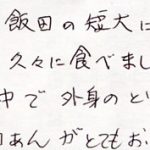 飯田の短大に
久々に食べまし
中で外身のとい
あんがとてもお